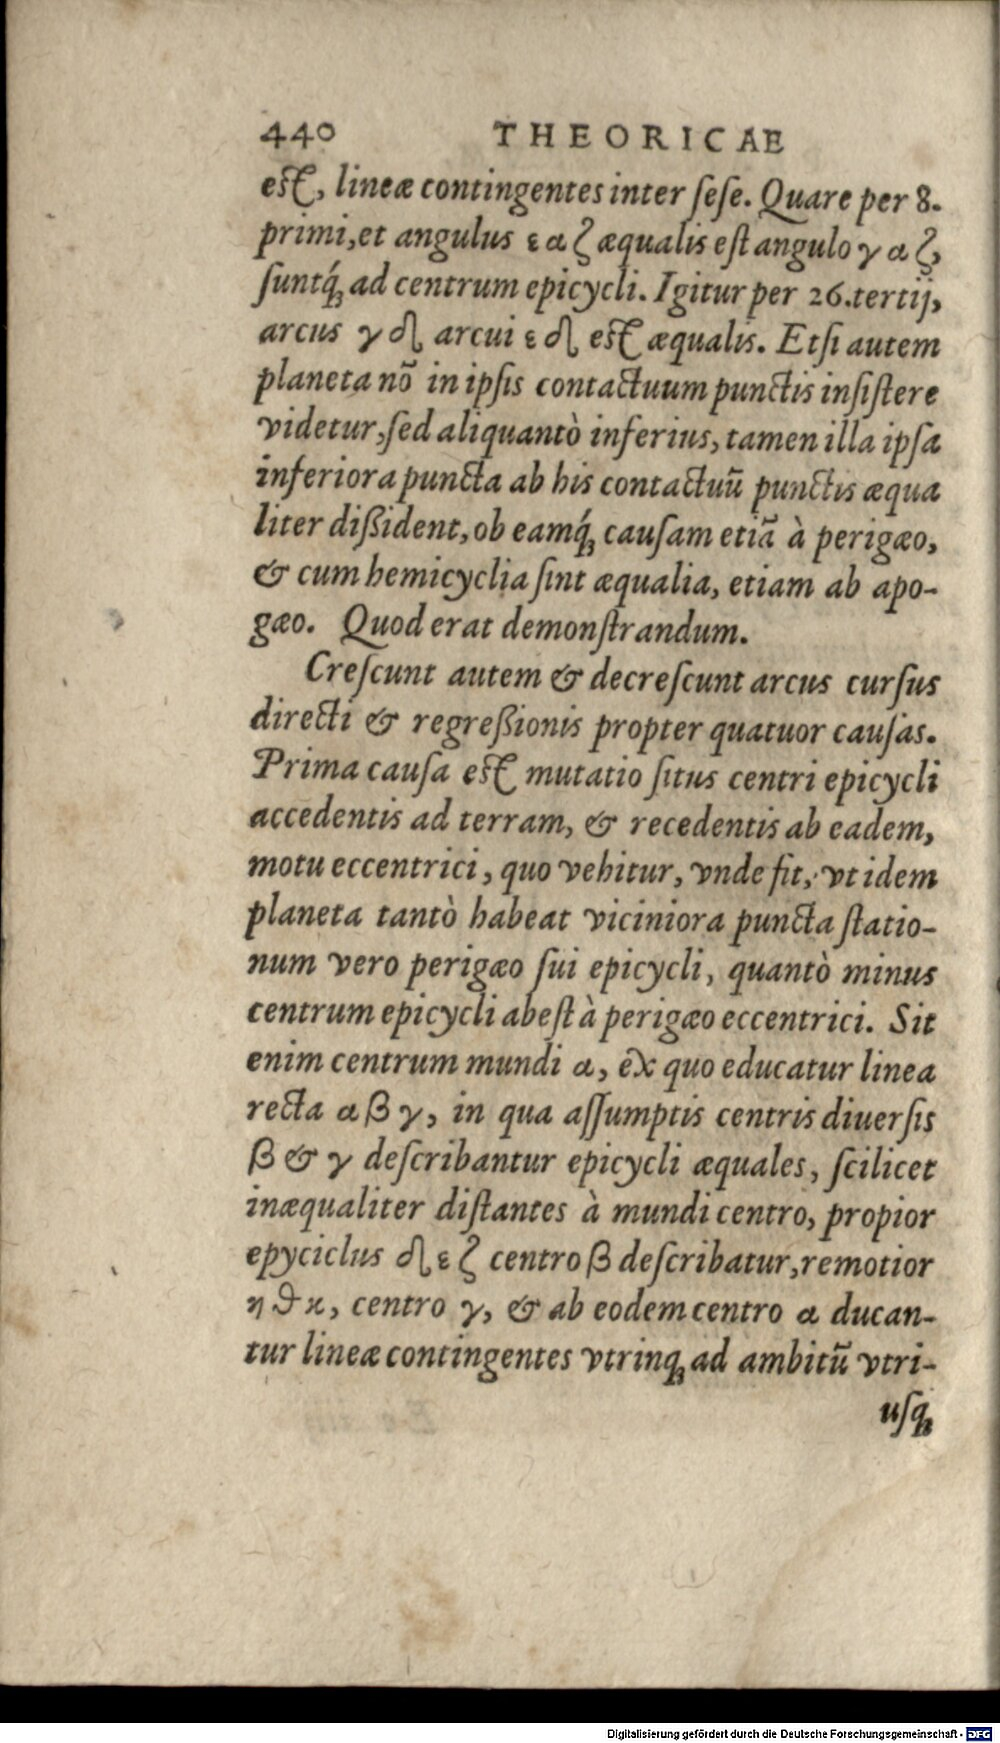 440 THEORICAE
est, lineæ contingentes inter sese. Quare per 8.
primi, et angulus ε α ζ æqualis est angulo γ α ζ,
suntq́; ad centrum epicycli. Igitur per 26. tertij,
arcus γ δ arcui ε δ est æqualis. Etsi autem
planeta nõ in ipsis contactuum punctis insistere
videtur, sed aliquantò inferius, tamen illa ipsa
inferiora puncta ab his contactuũ punctis æqua
liter dißident, ob eamq́; causam etiã à perigæo,
& cum hemicyclia sint æqualia, etiam ab apo-
gæo. Quod erat demonstrandum.
Crescunt autem & decrescunt arcus cursus
directi & regreßionis propter quatuor causas.
Prima causa est mutatio situs centri epicycli
accedentis ad terram, & recedentis ab eadem,
motu eccentrici, quo vehitur, vnde fit, vt idem
planeta tantò habeat viciniora puncta statio-
num vero perigæo sui epicycli, quantò minus
centrum epicycli abest à perigæo eccentrici. Sit
enim centrum mundi α, ex quo educatur linea
recta α β γ, in qua assumptis centris diuersis
β & γ describantur epicycli æquales, scilicet
inæqualiter distantes à mundi centro, propior
epyciclus δ ε ζ centro β describatur, remotior
η θ κ, centro γ, & ab eodem centro α ducan-
tur lineæ contingentes vtrinq; ad ambitũ vtri-
usq;
Digitalisierung gefördert durch die Deutsche Forschungsgemeinschaft - DFG